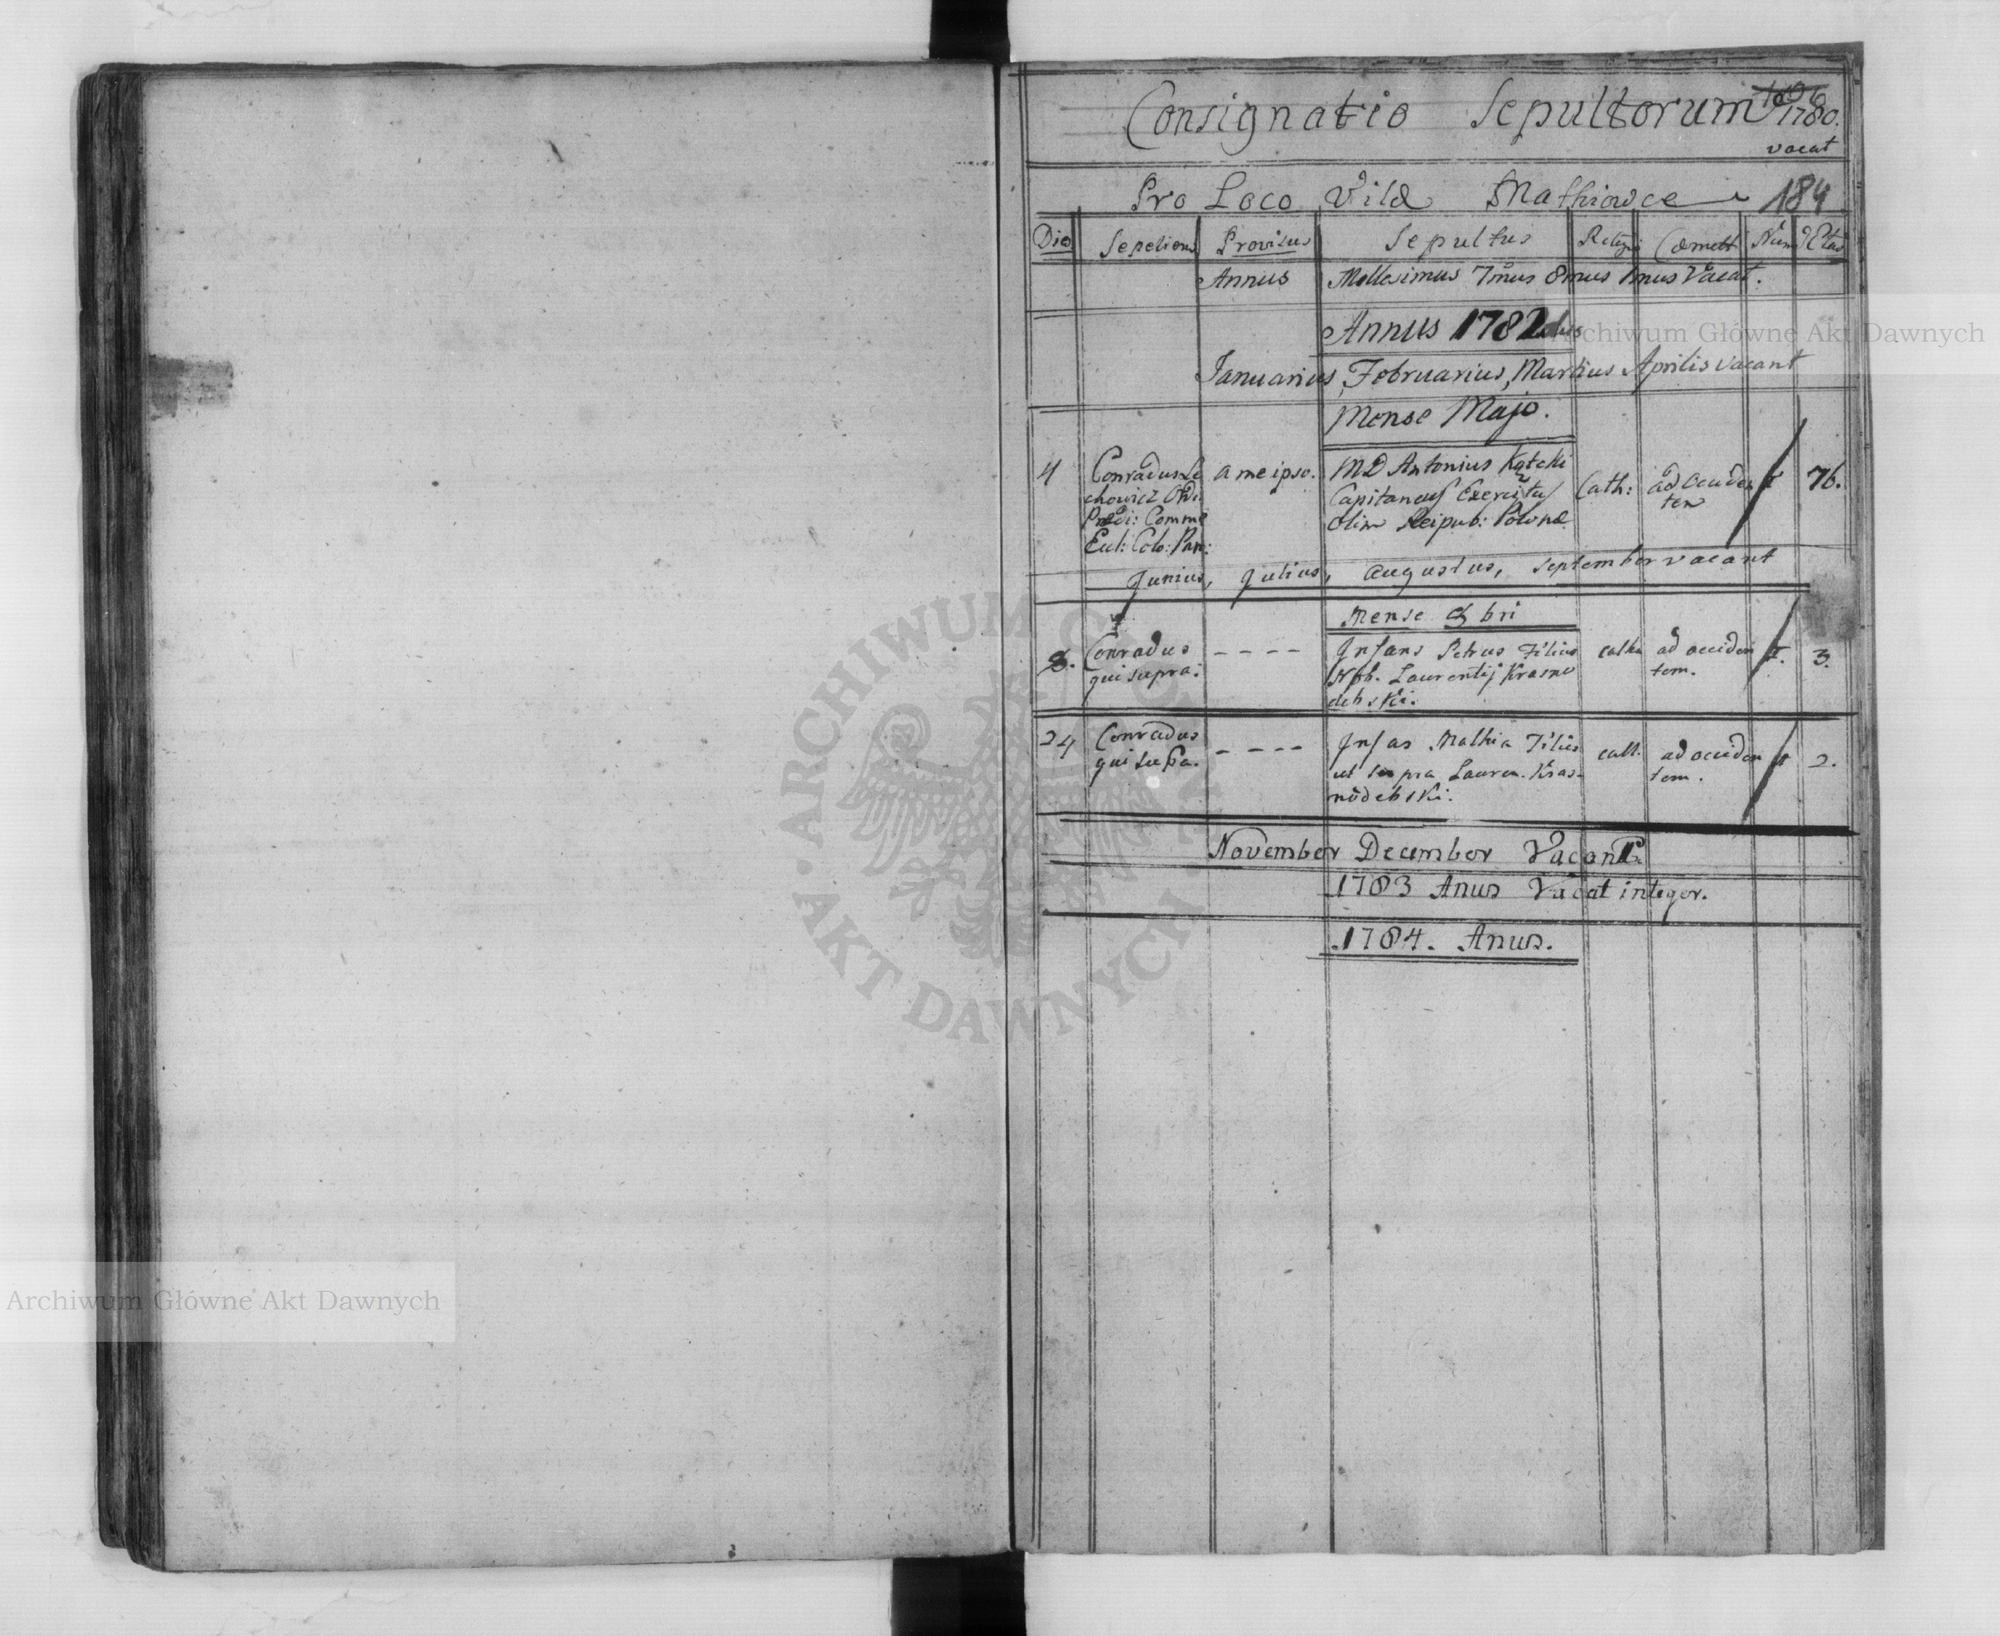 Consignatio Sepultorum 1780.
vacat
Pro Loco Vilæ Mathiowce 184
Die Sepeliens Provisus Sepultus Religio Cæmett Num Ætas
Annus Millesimus 7mus 8mus 1mus Vacat.
Annus 1782dus
Januarius, Februarius, Martius Aprilis vacant
Mense Majo.
4 Conradus Le a me ipso. MD Antonius Kątcki Cath: ad occiden 1 76.
chowicz Ord: Capitaneus Exercitus tem
Prædi: Comme olim Reipub: Polonæ
Eccl: Colo: Par:
Junius, Julius, Augustus, September vacant
Mense 8bri
8. Conradus - - - - Infans Petrus Filius cath ad occiden 1. 3.
qui supra: Nob. Laurentij Krasno tem.
debski.
24 Conradus - - - - Infas Mathia Filius cath. ad occiden 1 2.
qui supa. ut supra Lauren. Kras- tem.
nodebski.
November December Vacant
1783 Anus Vacat integer.
1784. Anus.
Archiwum Główne Akt Dawnych
Archiwum Główne Akt Dawnych
ARCHIWUM GŁÓWNE · AKT DAWNYCH ·